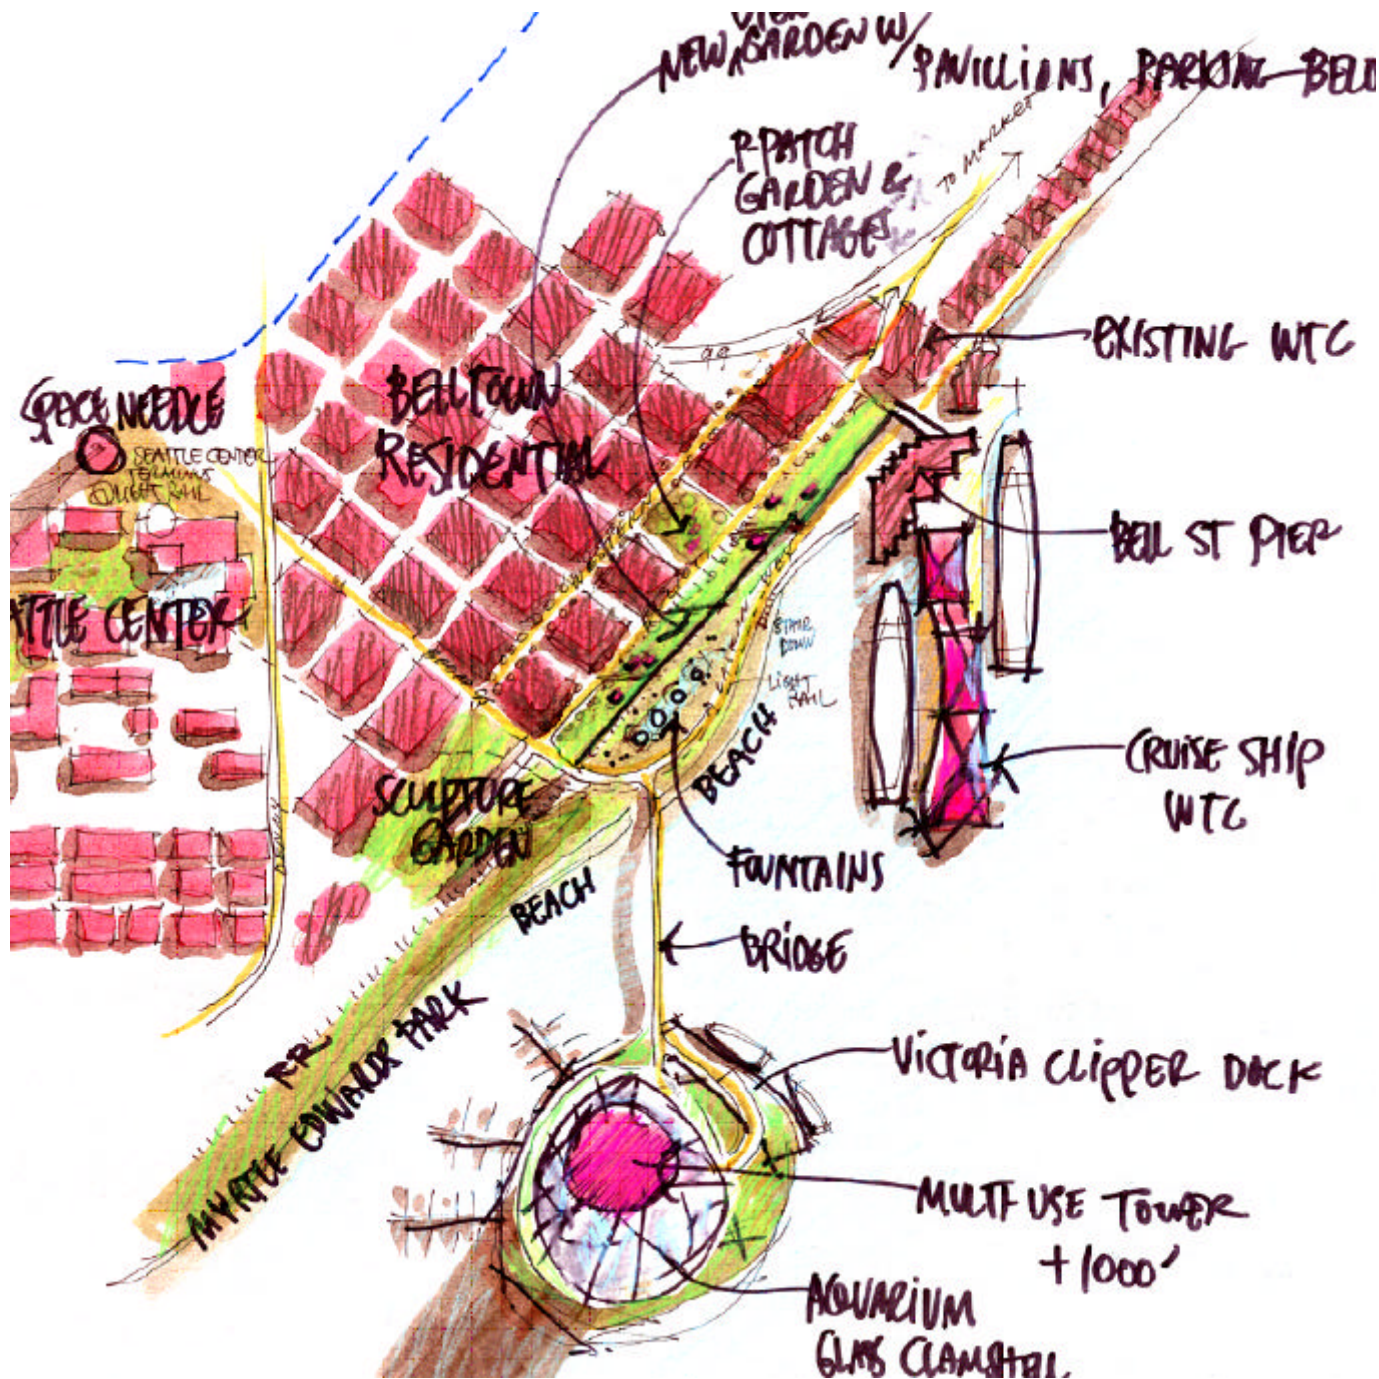 VIEW
NEW GARDEN W/
PAVILLIONS, PARKING BELO
P-PATCH
GARDEN &
COTTAGES
TO MARKET
EXISTING WTC
SPACE NEEDLE
SEATTLE CENTER
TERMINUS
LIGHT RAIL
BELLTOWN
RESIDENTIAL
BELL ST PIER
ATTLE CENTER
WESTERN
STAIR
DOWN
LIGHT
RAIL
BEACH
CRUISE SHIP
WTC
SCULPTURE
GARDEN
FOUNTAINS
BEACH
BRIDGE
RR
MYRTLE EDWARDS PARK
VICTORIA CLIPPER DOCK
MULTI USE TOWER
+1000'
AQUARIUM
GLASS CLAMSHELL